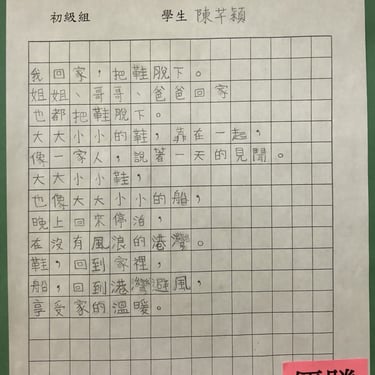 初級組 學生 陳芊穎
我回家，把鞋脫下。
姐姐、哥哥、爸爸回家
也都把鞋脫下。
大大小小的鞋，靠在一起，
像一家人，說著一天的見聞。
大大小小鞋，
也像大大小小的船，
晚上回來停泊，
在沒有風浪的港灣。
鞋，回到家裡，
船，回到港灣避風，
享受家的溫暖。